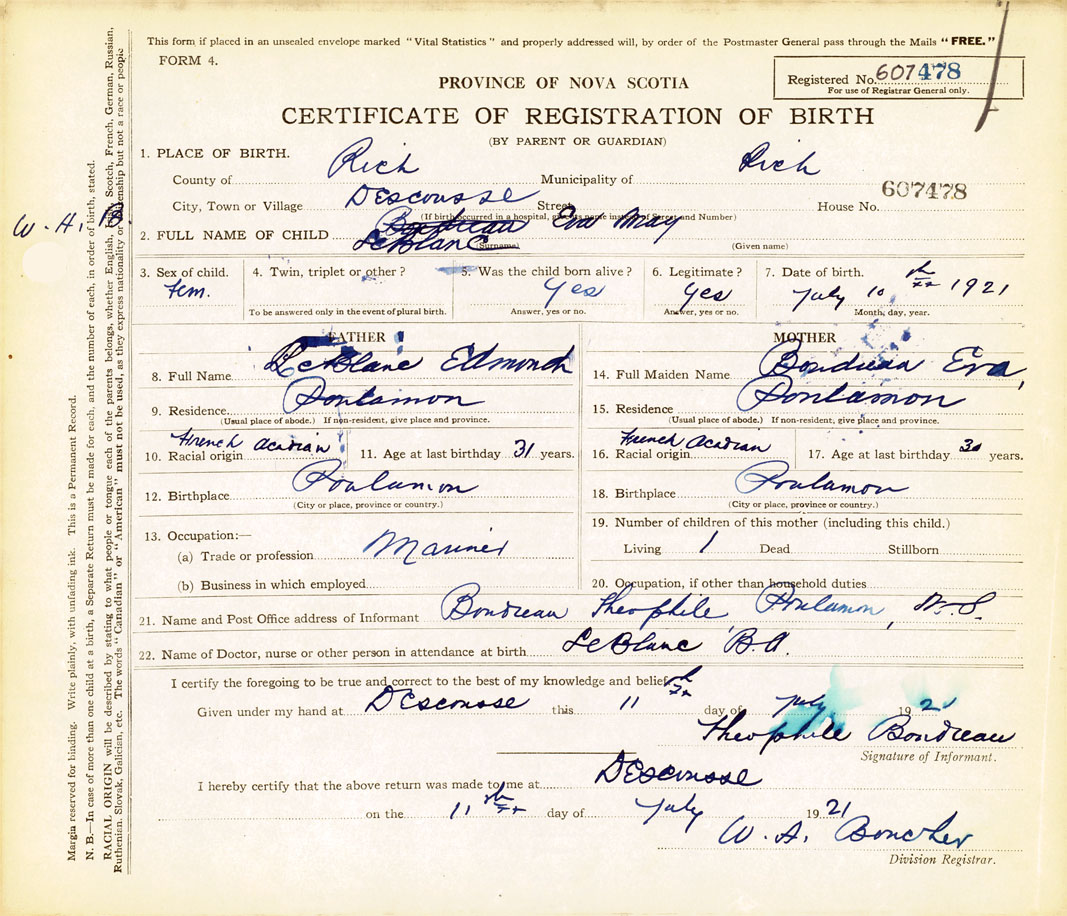 This form if placed in an unsealed envelope marked "Vital Statistics" and properly addressed will, by order of the Postmaster General pass through the Mails "FREE."
FORM 4.
Registered No. 607478
For use of Registrar General only.
PROVINCE OF NOVA SCOTIA
CERTIFICATE OF REGISTRATION OF BIRTH
(BY PARENT OR GUARDIAN)
1. PLACE OF BIRTH.
County of Rich Municipality of Rich
607478
City, Town or Village DEscousse Street House No.
(If birth occurred in a hospital, give its name instead of Street and Number)
W. A. B.
Boudreau Eva May
2. FULL NAME OF CHILD LeBlanc
(Surname) (Given name)
3. Sex of child. Fem.
4. Twin, triplet or other?
To be answered only in the event of plural birth.
5. Was the child born alive? Yes
Answer, yes or no.
6. Legitimate? Yes
Answer, yes or no.
7. Date of birth. July 10th 1921
Month, day, year.
FATHER
8. Full Name LeBlanc Edmond
9. Residence. Poulamon
(Usual place of abode.) If non-resident, give place and province.
10. Racial origin French Acadian 11. Age at last birthday 31 years.
12. Birthplace Poulamon
(City or place, province or country.)
13. Occupation:—
(a) Trade or profession Mariner
(b) Business in which employed
MOTHER
14. Full Maiden Name Boudreau Eva
15. Residence Poulamon
(Usual place of abode.) If non-resident, give place and province.
16. Racial origin French Acadian 17. Age at last birthday 30 years.
18. Birthplace Poulamon
(City or place, province or country.)
19. Number of children of this mother (including this child.)
Living 1 Dead Stillborn
20. Occupation, if other than household duties
21. Name and Post Office address of Informant Boudreau Theophile, Poulamon, N.S.
22. Name of Doctor, nurse or other person in attendance at birth LeBlanc B.A.
I certify the foregoing to be true and correct to the best of my knowledge and belief.
Given under my hand at DEscousse this 11th day of July 1921
Theophile Boudreau
Signature of Informant.
I hereby certify that the above return was made to me at DEscousse
on the 11th day of July 1921
W. A. Boucher
Division Registrar.
Margin reserved for binding. Write plainly, with unfading ink. This is a Permanent Record.
N. B.—In case of more than one child at a birth, a Separate Return must be made for each, and the number of each, in order of birth, stated.
RACIAL ORIGIN will be described by stating to what people or tongue each of the parents belongs, whether English, Irish, Scotch, French, German, Russian,
Ruthenian, Slovak, Galician, etc. The words "Canadian" or "American" must not be used, as they express nationality or citizenship but not a race or people